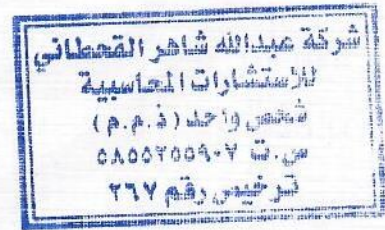 شركة عبدالله شاهر القحطاني
للإستشارات المحاسبية
شخص واحد (ذ.م.م)
س.ت ٥٨٥٥٣٥٥٩٠٧
ترخيص رقم ٢٦٧